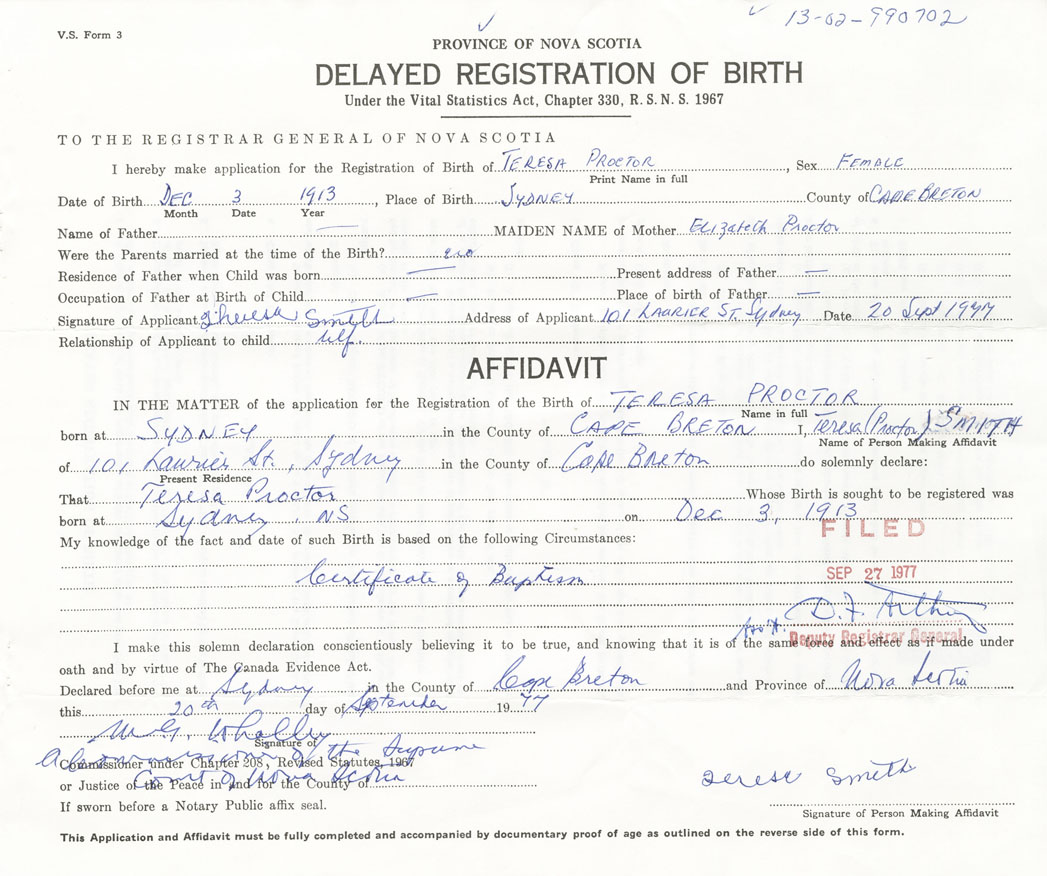 V.S. Form 3
13-02-990702
PROVINCE OF NOVA SCOTIA
DELAYED REGISTRATION OF BIRTH
Under the Vital Statistics Act, Chapter 330, R.S.N.S. 1967
TO THE REGISTRAR GENERAL OF NOVA SCOTIA
I hereby make application for the Registration of Birth of TERESA PROCTOR, Sex FEMALE
Print Name in full
Date of Birth DEC 3 1913, Place of Birth SYDNEY County of CAPE BRETON
Month Date Year
Name of Father — MAIDEN NAME of Mother Elizabeth Proctor
Were the Parents married at the time of the Birth? no
Residence of Father when Child was born — Present address of Father —
Occupation of Father at Birth of Child — Place of birth of Father —
Signature of Applicant Theresa Smith Address of Applicant 101 LAURIER ST. Sydney Date 20 Sept 1977
Relationship of Applicant to child self.
AFFIDAVIT
IN THE MATTER of the application for the Registration of the Birth of TERESA PROCTOR
Name in full
born at SYDNEY in the County of CAPE BRETON I, Teresa (Proctor) SMITH
Name of Person Making Affidavit
of 101 Laurier St., Sydney in the County of Cape Breton do solemnly declare:
Present Residence
That Teresa Proctor Whose Birth is sought to be registered was
born at Sydney, NS on Dec 3, 1913
FILED
My knowledge of the fact and date of such Birth is based on the following Circumstances:
Certificate of Baptism
SEP 27 1977
D.F. Arthur
Deputy Registrar General
I make this solemn declaration conscientiously believing it to be true, and knowing that it is of the same force and effect as if made under
oath and by virtue of The Canada Evidence Act.
Declared before me at Sydney in the County of Cape Breton and Province of Nova Scotia
this 20th day of September 1977
M. G. Whalley
Signature of
A Commissioner of the Supreme
Commissioner under Chapter 208, Revised Statutes, 1967
Court of Nova Scotia
or Justice of the Peace in and for the County of
Terese Smith
If sworn before a Notary Public affix seal.
Signature of Person Making Affidavit
This Application and Affidavit must be fully completed and accompanied by documentary proof of age as outlined on the reverse side of this form.